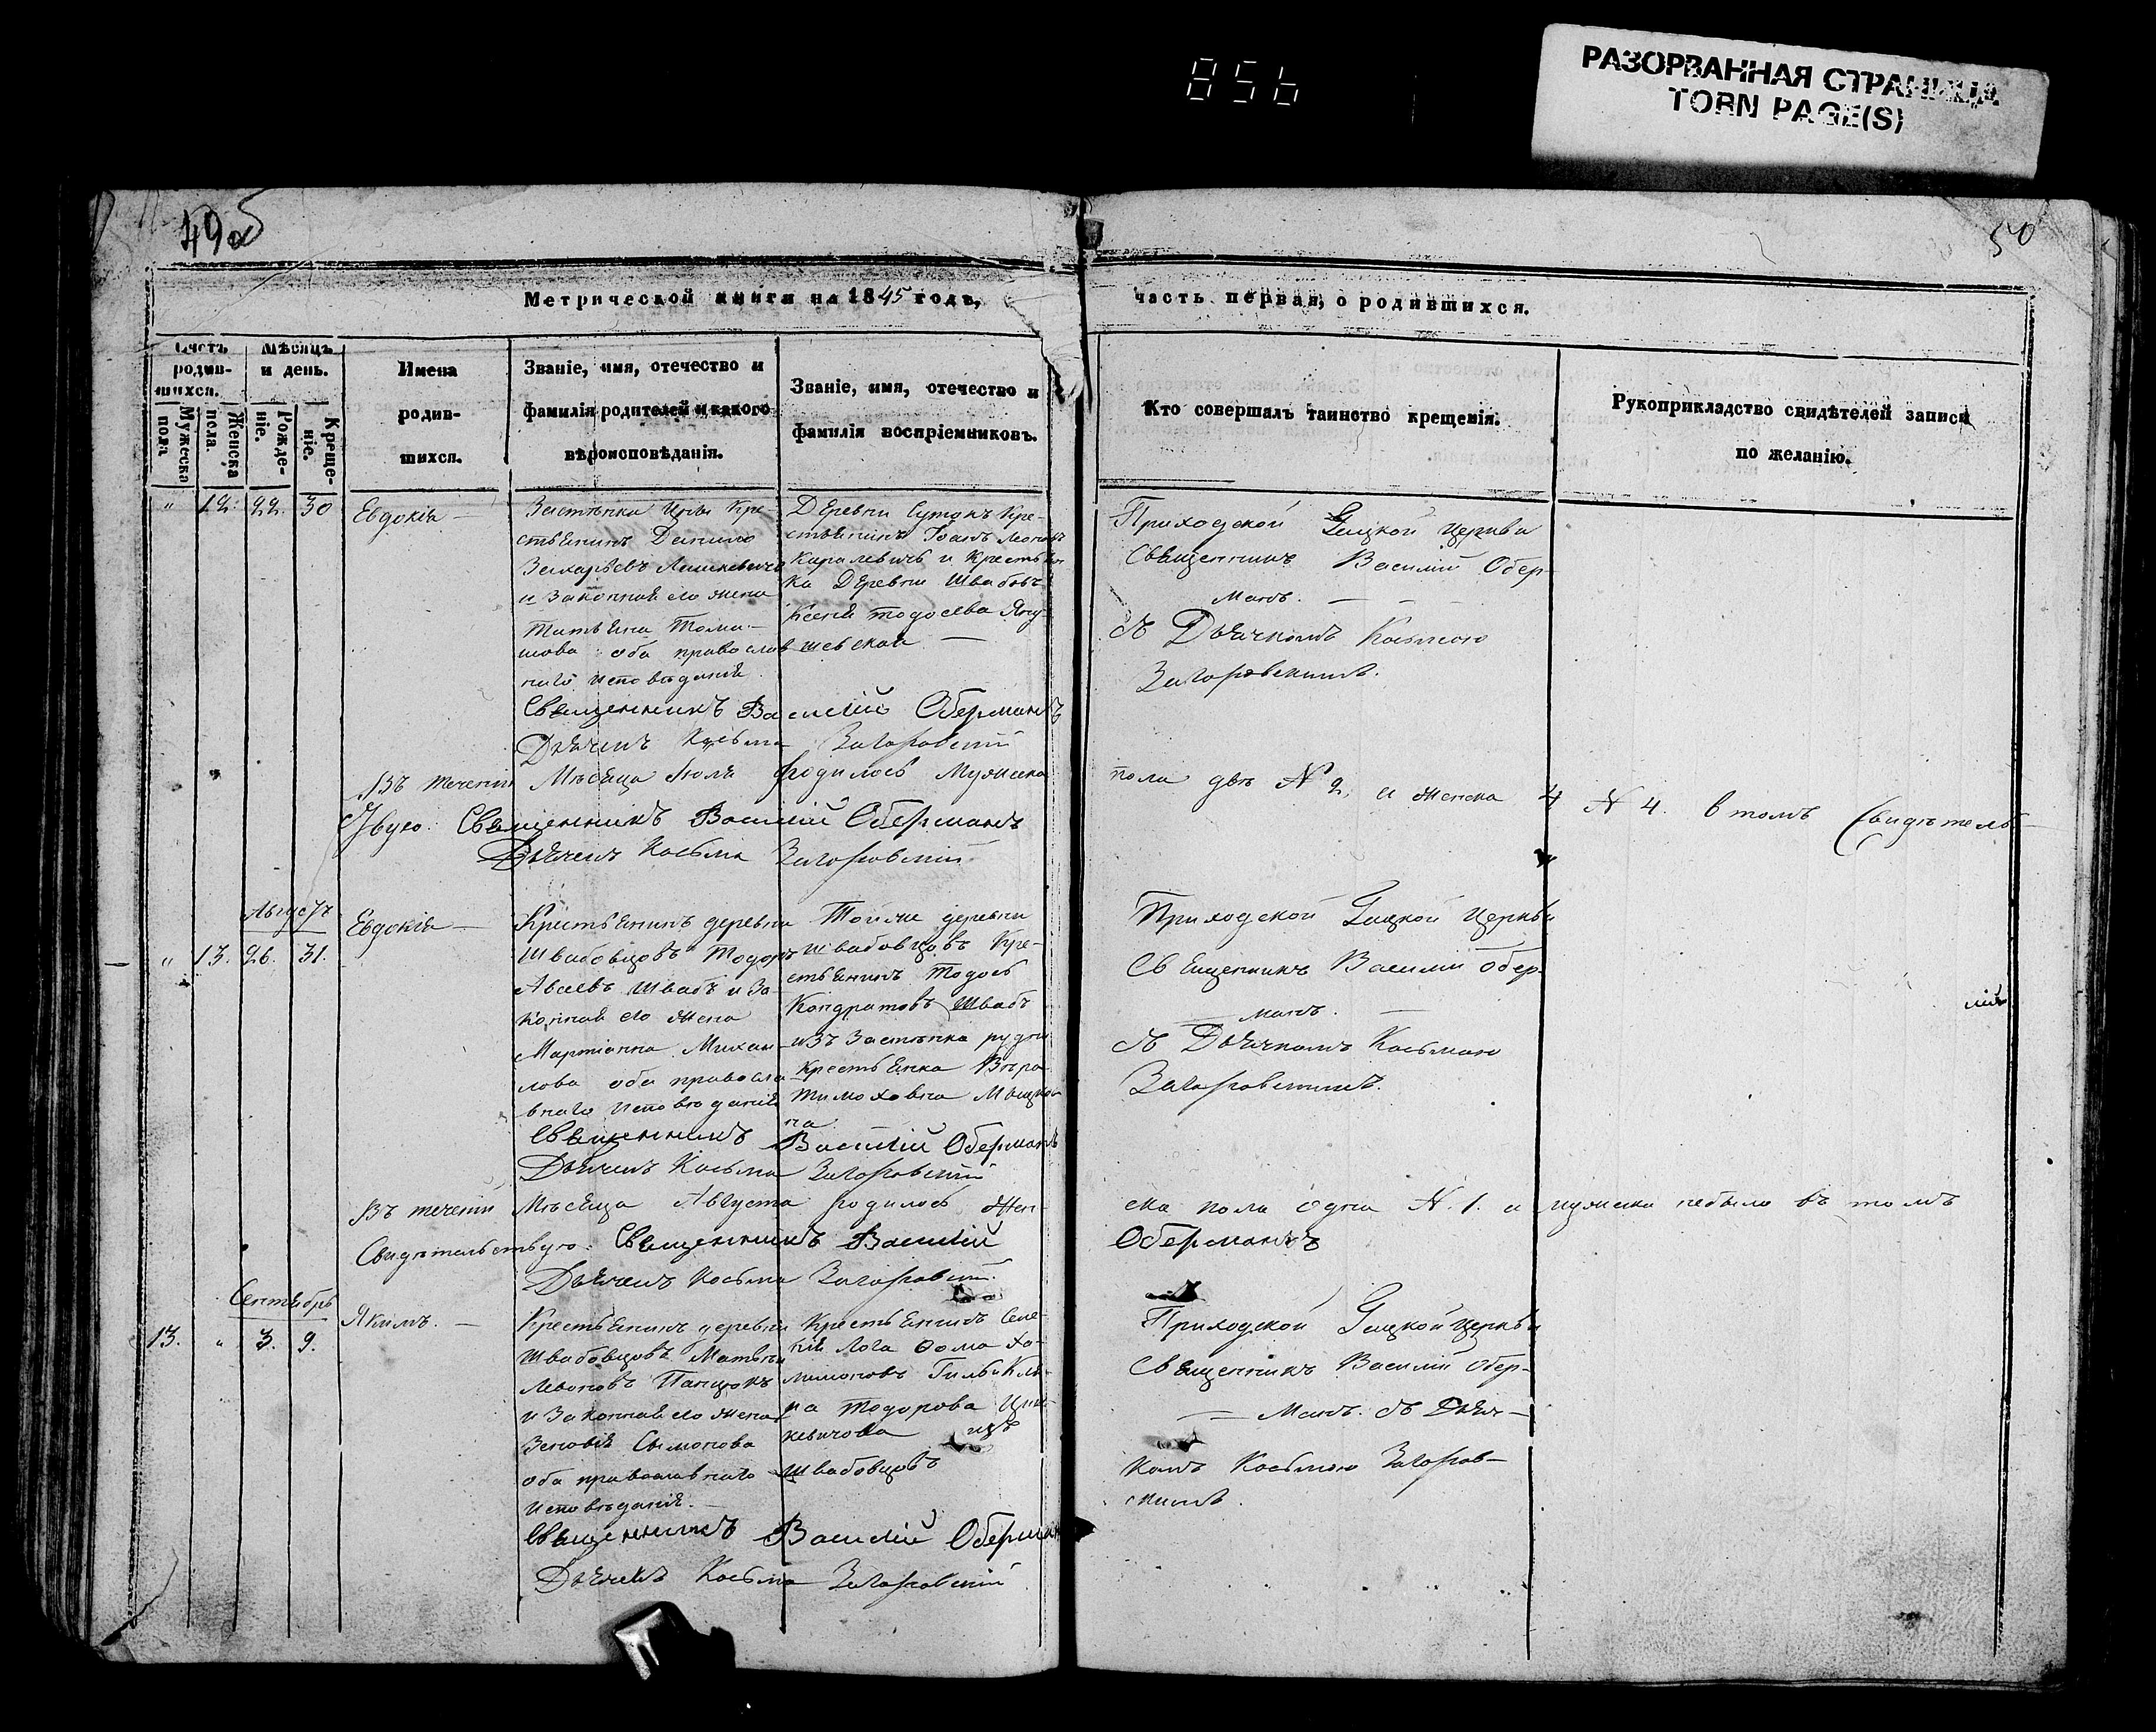 856
РАЗОРВАННАЯ СТРАНИЦА
TORN PAGE(S)
49об
50
Метрической книги на 1845 годъ,
часть первая, о родившихся.
Счетъ родив-
шихся.
Мужеска пола
Женска пола.
Мѣсяцъ и день.
Рожде-
ніе.
Креще-
ніе.
Имена
родив-
шихся.
Званіе, имя, отечество и
фамилія родителей и какого
вѣроисповѣданія.
Званіе, имя, отечество и
фамилія воспріемниковъ.
Кто совершалъ таинство крещенія.
Рукоприкладство свидѣтелей записи
по желанію.
" 12. 22. 30
Евдокія —
Застѣнка Кре-
стьянинъ Данило
Захарьевъ
и законная его жена
Татьяна Тома-
шова оба православ
наго исповѣданія.
Деревни Кре-
стьянинъ Іоанъ
Каралевичъ и крестьян
ка деревни Швабовъ
Ксенія Тодосева Яну-
шевская —
Приходской Церкви
Священникъ Василій Обер-
манъ. —
съ Дьячкомъ Косьмою
Загоровскимъ.
Священникъ Василій Оберманъ
Дьячекъ Косьма Загоровскій
Въ теченіи Мѣсяца Іюля родилось Мужска
пола двѣ N 2, а женска 4 N 4. в томъ Свидѣтель-
ствую: Священникъ Василій Оберманъ
Дьячекъ Косьма Загоровскій
Августъ
" 13. 26. 31.
Евдокія —
Крестьянинъ деревни
Швабовцовъ Тодоръ
Швабъ и за-
конная его жена
Марьянна Михай-
лова оба правосла-
внаго исповѣданія
Той же деревни
Швабовцовъ Кре-
стьянинъ Тодось
Кондратовъ Швабъ
изъ Застѣнка рудни
крестьянка Вѣра
Тимоховна
на
Приходской Церкви
Священникъ Василій Обер-
манъ. —
съ Дьячкомъ Косьмою
Загоровскимъ.
лій
Священникъ Василій Оберманъ
Дьячекъ Косьма Загоровскій
Въ теченіи Мѣсяца Августа родилось Жен-
ска пола одна N. 1. а мужска небыло въ томъ
Свидѣтельствую: Священникъ Василій
Оберманъ
Дьячекъ Косьма Загоровскій.
Сентябрь
13. " 3. 9.
Якимъ. —
Крестьянинъ деревни
Швабовцовъ Матвѣй
Левоновъ Панцокъ
и законная его жена
Зеновія Сымонова
оба православнаго
исповѣданія. —
Крестьянинъ Селе-
нія Лога Фома Ха-
лимоновъ
на Тодорова
кевичова изъ
Швабовцовъ
Приходской Церкви
Священникъ Василій Обер-
— Манъ. съ Дьяч-
комъ Косьмою Загоров-
скимъ.
Священникъ Василій Оберман
Дьячекъ Косьма Загоровскій